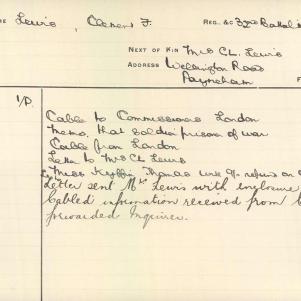 Lewis, Clement F. Reg. &c 32nd Battalio
Next of Kin Mrs C.L. Lewis
Address Wellington Road
Payneham
1/P.
Cable to Commissioner London
Memo. that soldier prisoner of war
Cable from London
Letter to Mrs CL Lewis
Miss Kyffin Thomas re refund on
Letter sent Mrs Lewis with enclosure
Cabled information received from
forwarded Inquirer.